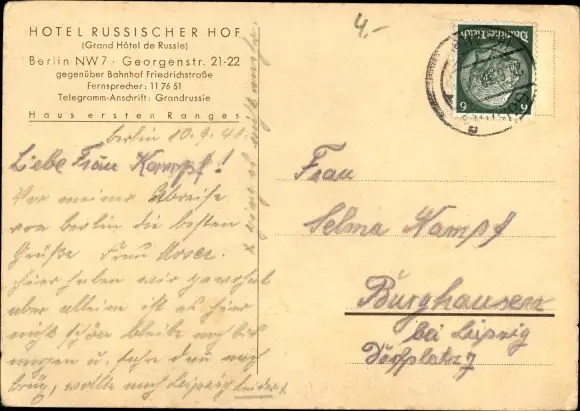 4.-
HOTEL RUSSISCHER HOF
(Grand Hôtel de Russie)
Berlin NW7 · Georgenstr. 21-22
gegenüber Bahnhof Friedrichstraße
Fernsprecher: 11 76 51
Telegramm-Anschrift: Grandrussie
Haus ersten Ranges
Deutsches Reich
6 6
Berlin 10.9.41.
Liebe Frau Kampf!
Vor meiner Abreise
von Berlin die besten
Grüße Frau Moser.
hier haben wir gewohnt
aber allein ist es hier
nicht schön bleibe noch bis
morgen u. fahre dann nach
wollte nach Leipzig leider
Frau
Selma Kampf
Burghausen
bei Leipzig
Dorfplatz 7